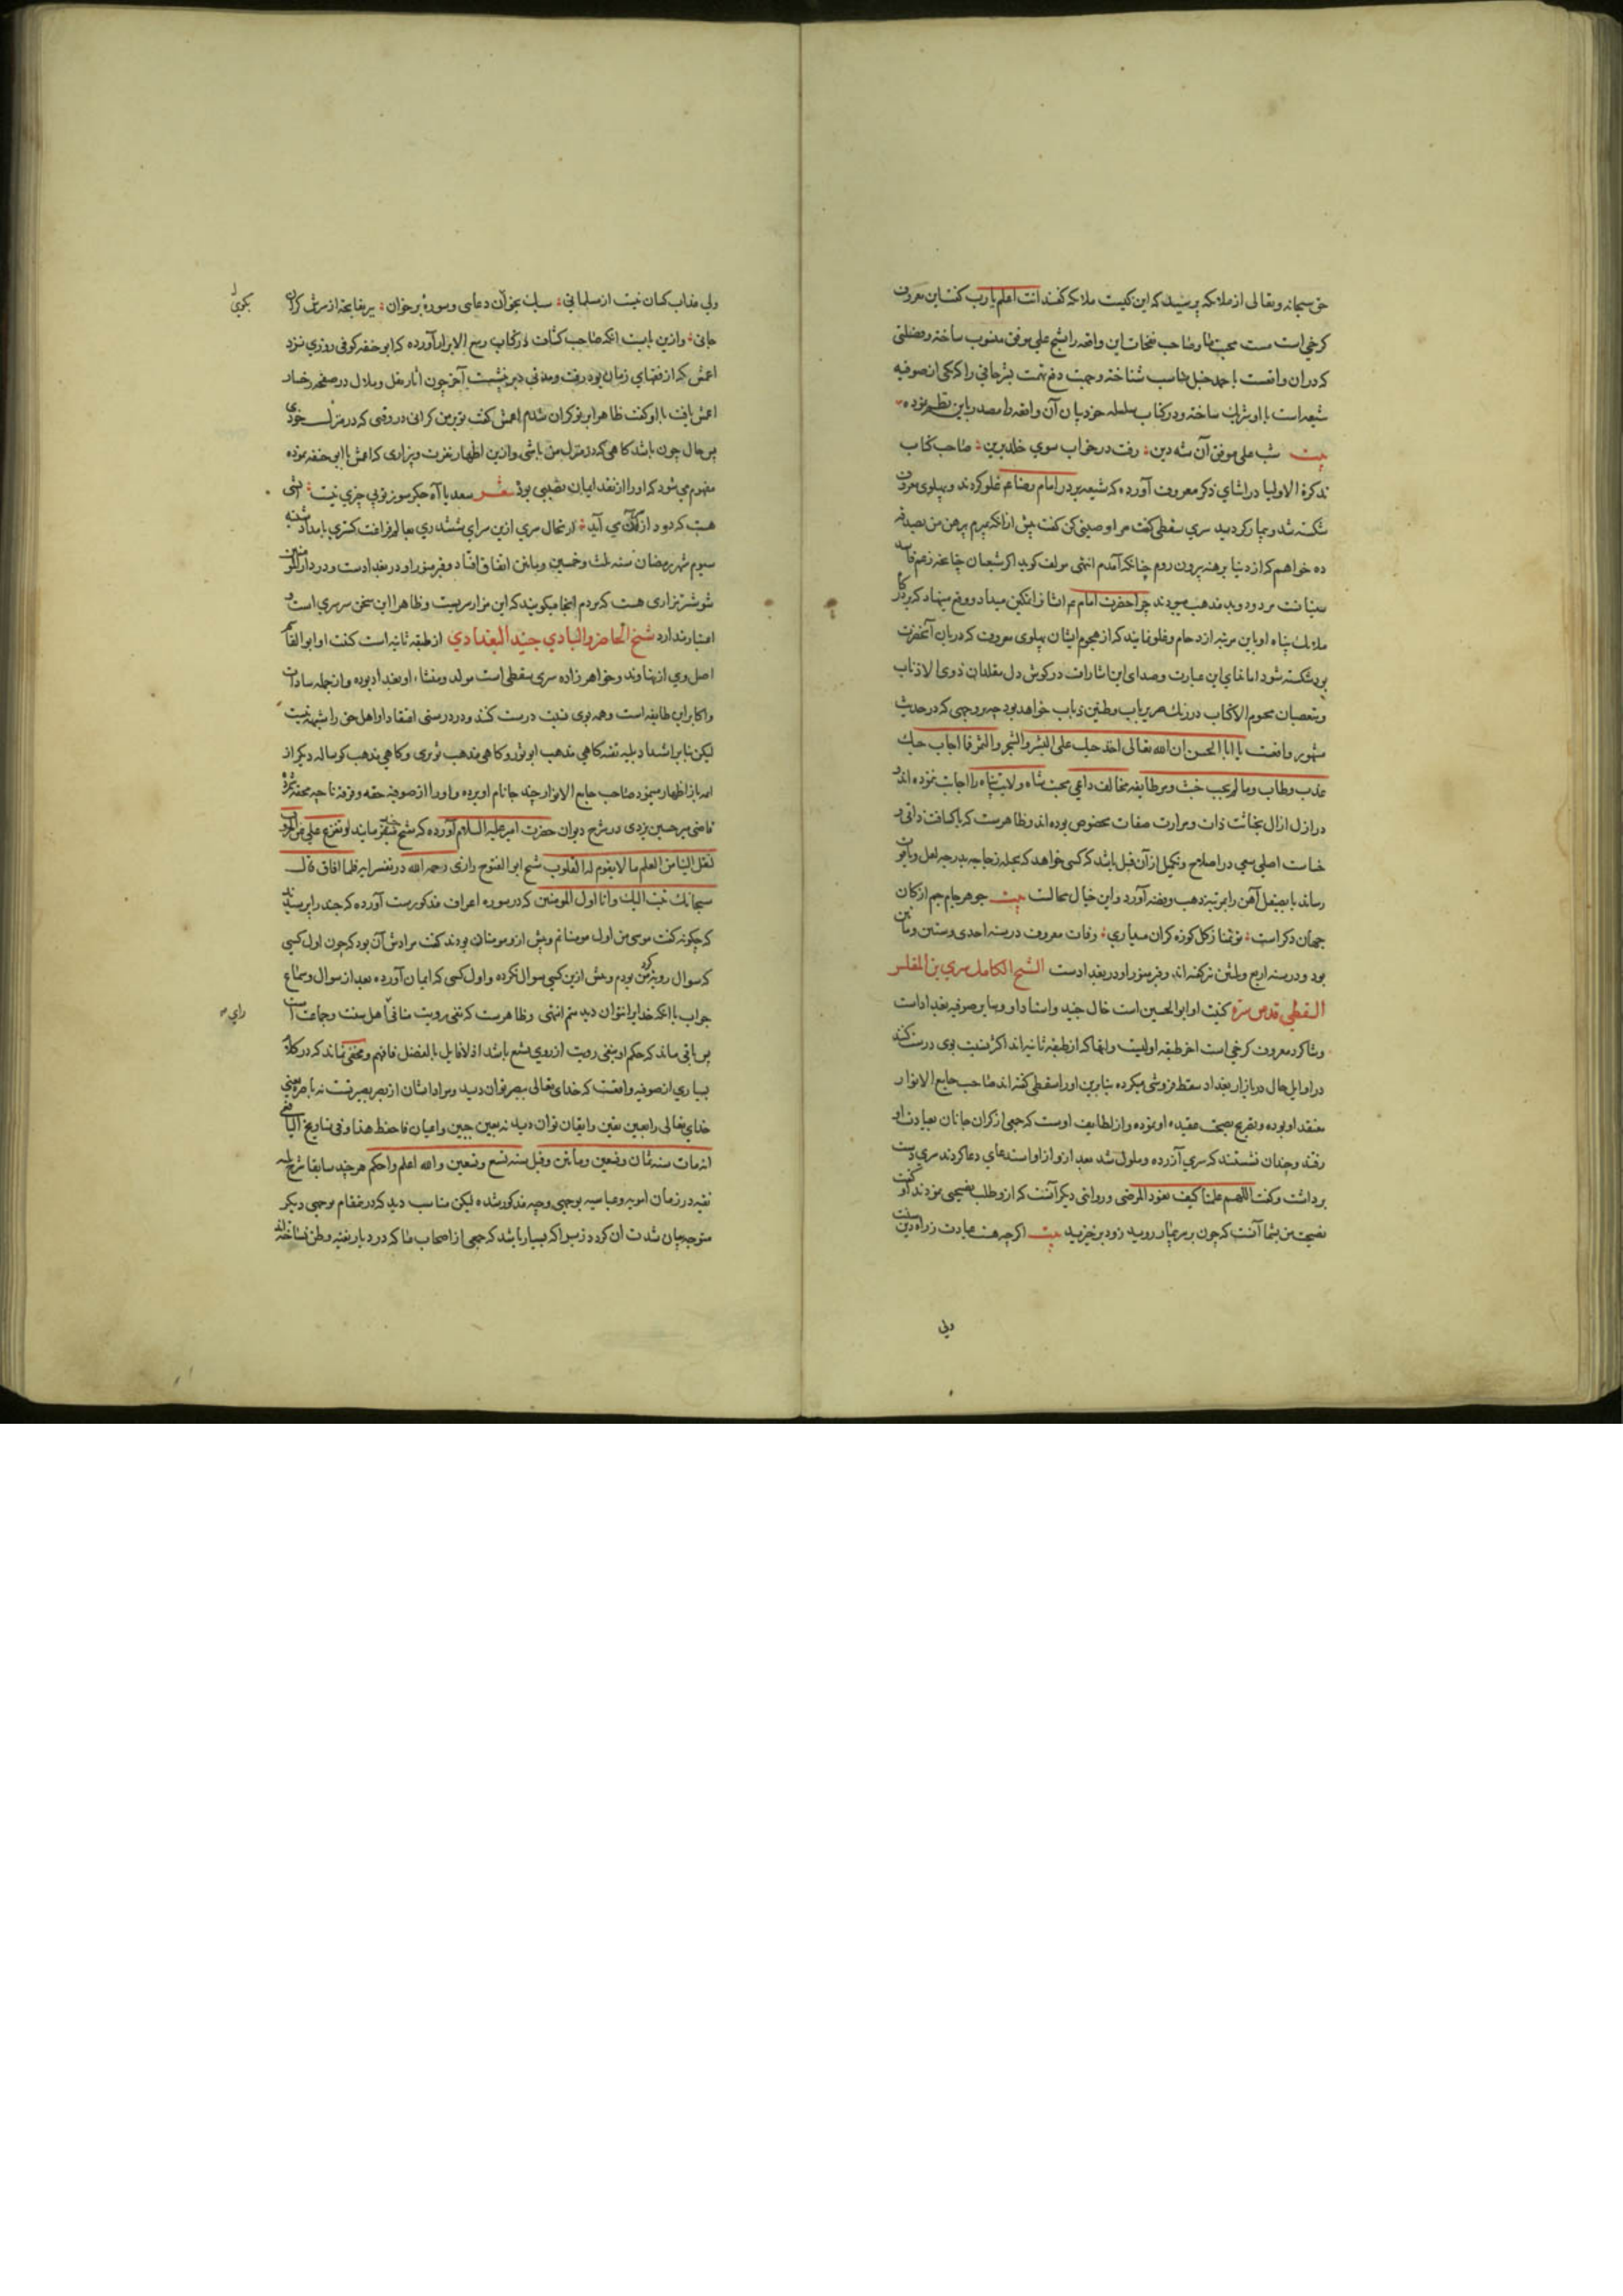 حق سبحانه و تعالی از ملائکه پرسید که این کیست ملائکه گفتند انت اعلم یا رب گفت این معروف
کرخی است مست محبت ما و صاحب نفحات این واقعه را بشیخ علی موفق منسوب ساخته و فضلتی
که در آن واقعست با احمد حنبل مناسب شناخته و جهت دفع تهمت بشر حافی را که یکی از صوفیه
شیعه است با او شریک ساخته و در کتاب سلسله خود بیان آن واقعه را مصدر باین نظم نموده
بیت شب علی موفق آن شه دین رفت در خواب سوی خلد برین صاحب کتاب
تذکرة الاولیا در اثنای ذکر معروف آورده که شیعه بر در امام رضا عم غلو کردند و پهلوی معروف
شکسته شد و بیمار گردید سری سقطی گفت مرا وصیتی کن گفت پیش از آنکه بمیرم پیرهن من بصدقه
ده خواهم که از دنیا برهنه بیرون روم چنانکه آمدم انتهی مولف گوید اگر شیعیان چنانچه زعم
سنیانست مردود و بد مذهب میبودند چرا حضرت امام عم ایشانرا تمکین میداد و وقع مینهاد که بر درگاه
ملائک پناه او باین مرتبه ازدحام و غلو نمایند که از هجوم ایشان پهلوی معروف که دربان آنحضرت
بود شکسته شود اما غنای این عبارت و صدای این اشارات در گوش دل مقلدان ذوی الاذناب
و متعصبان محروم الاکتساب در رنگ صریر باب و طنین ذباب خواهد بود چه بر وجهی که در حدیث
مشهور واقعست یا ابا الحسن ان الله تعالی اخذ حبک علی البشر و الشجر و الثمر فما اجاب حبک
عذب و طاب و ما لم یجب خبث و مر طایفه مخالف داعی محبت شاه ولایت پناه را اجابت ننموده اند
در ازل ازال بخباثت ذات و مرارت صفات مخصوص بوده اند و ظاهرست که با کثافت ذاتی و
خساست اصلی سعی در اصلاح و تکمیل از آن قبیل باشد که کسی خواهد که بحیله زجاجه بدرجه لعل و یاقوت
رساند یا بصیقل آهن را بمرتبه ذهب و فضه آورد و این خیال محالست بیت جوهر جام جم از کان
جهان دگر است تو تمنا ز گل کوزه گران میداری وفات معروف در سنه احدی و ستین و مأتین
بود و در سنه اربع و مأتین نیز گفته اند و قبر منور او در بغدادست الشیخ الکامل سری بن المغلس
السقطی قدس سره کنیت او ابو الحسین است خال جنید و استاد او و سایر صوفیه بغداد است
و شاگرد معروف کرخی است از طبقه اولیست و آنها که از طبقه ثانیه اند اکثر نسبت بوی درست کنند
در اوایل حال در بازار بغداد سقط فروشی میکرده بنابرین او را سقطی گفته اند صاحب جامع الانوار
معتقد او بوده و تصریح بصحت عقیده او نموده و از لطایف اوست که جمعی از گران جانان بعیادت او
رفتند و چندان نشستند که سری آزرده و ملول شد بعد از آن از او استدعای دعا کردند سری دست
برداشت و گفت اللهم علمنا کیف نعود المرضی و روایتی دیگر آنست که از و طلب نصیحتی نمودند او گفت
نصیحت من بشما آنست که چون بر سر بیمار روید زود برخیزید بیت اگر چه هست عیادت ز راه دین سنت
ولی
ولی عذاب گران نیست از مسلمانی سبک بخوان دعایی و سورهٔ برخوان
جانی و ازین بابت آنکه صاحب کشاف در کتاب ربیع الابرار آورده که ابو حنیفه کوفی روزی نزد
اعمش که از فقهای زمان بود رفت و مدتی دیر بنشست آخر چون آثار ثقل و ملال در صفحه رخسار
اعمش یافت با او گفت ظاهرا بر تو گران شدم اعمش گفت تو بر من گرانی در وقتی که در منزل خودی
پس حال چون باشد گاهی که در منزل من باشی و ازین اظهار نفرت و بیزاری که اعمش با ابو حنیفه نموده
مفهوم می شود که او را از نقد ایمان نصیبی بوده شعر سعدیا آه جگر سوز تو بی چیزی نیست آتشی
هست که دود از آن می آید ارتحال سری ازین سرای ششدری بعالم مرافقت کبری بامداد
سیوم شهر رمضان سنه ثلث و خمسین و مأتین اتفاق افتاد و قبر منور او در بغدادست و در دار المومنین
شوشتر مزاری هست که مردم آنجا میگویند که این مزار سریست و ظاهرا این سخن سرسری است و
اعتبار ندارد شیخ الحاضر و البادی جنید البغدادی از طبقه ثانیه است کنیت او ابو القاسم
اصل وی از نهاوند و خواهر زاده سری سقطی است مولد و منشاء او بغداد بوده و از جمله سادات
و اکابر این طایفه است و همه بوی نسبت درست کنند و در درستی اعتقاد او اهل حق را شبهه نیست
لیکن بنابر اشتداد بلیه تقیه گاهی بمذهب ابو ثور و گاهی بمذهب ثوری و گاهی بمذهب گوساله دیگر از
قاضی میر حسین یزدی در شرح دیوان حضرت امیر علیه السلام آورده که شیخ جنید میفرمایند لو تفرغ علی من الحروب
لنقل الینا من العلم ما لا یقوم له القلوب شیخ ابو الفتوح رازی رحمه الله در تفسیر
سبحانک تبت الیک و انا اول المومنین که در سوره اعراف مذکورست آورده که جنید را پرسیدند
که چگونه گفت موسی من اول مومنانم و پیش ازو مومنان بودند گفت مرادش آن بود که چون اول کسی
که سوال رویت کرد من بودم و پیش ازین کسی سوال نکرده و اول کسی که ایمان آورده بعد از سوال و سماع
جواب با آنکه خدایرا نتوان دید منم انتهی و ظاهرست که نفی رویت منافی اهل سنت و جماعت است
پس باقی ماند که حکم او بنفی رویت از روی تشیع باشد اذ لا قایل بالفصل فافهم و مخفی نماند که در کلام
بسیاری از صوفیه واقعست که خدای تعالی ببصر توان دید و مراد ایشان از بصر بصیرتست نه باصره یعنی
خدای تعالی را بعین یقین و ایقان توان دید نه بعین جبین و اعیان فاحفظ هذا و فی تاریخ الیافعی
انه مات سنه ثمان و تسعین و مأتین و قیل سنه تسع و تسعین و الله اعلم و احکم هر چند سابقا شرح بلیه
تقیه در زمان امویه و عباسیه بوجهی وجیه مذکور شده لیکن مناسب دید که در مقام بوجهی دیگر
متوجه بیان شدت آن گردد زیرا که بسیار باشد که جمعی از اصحاب ما که در دیار تقیه وطن نساخته اند